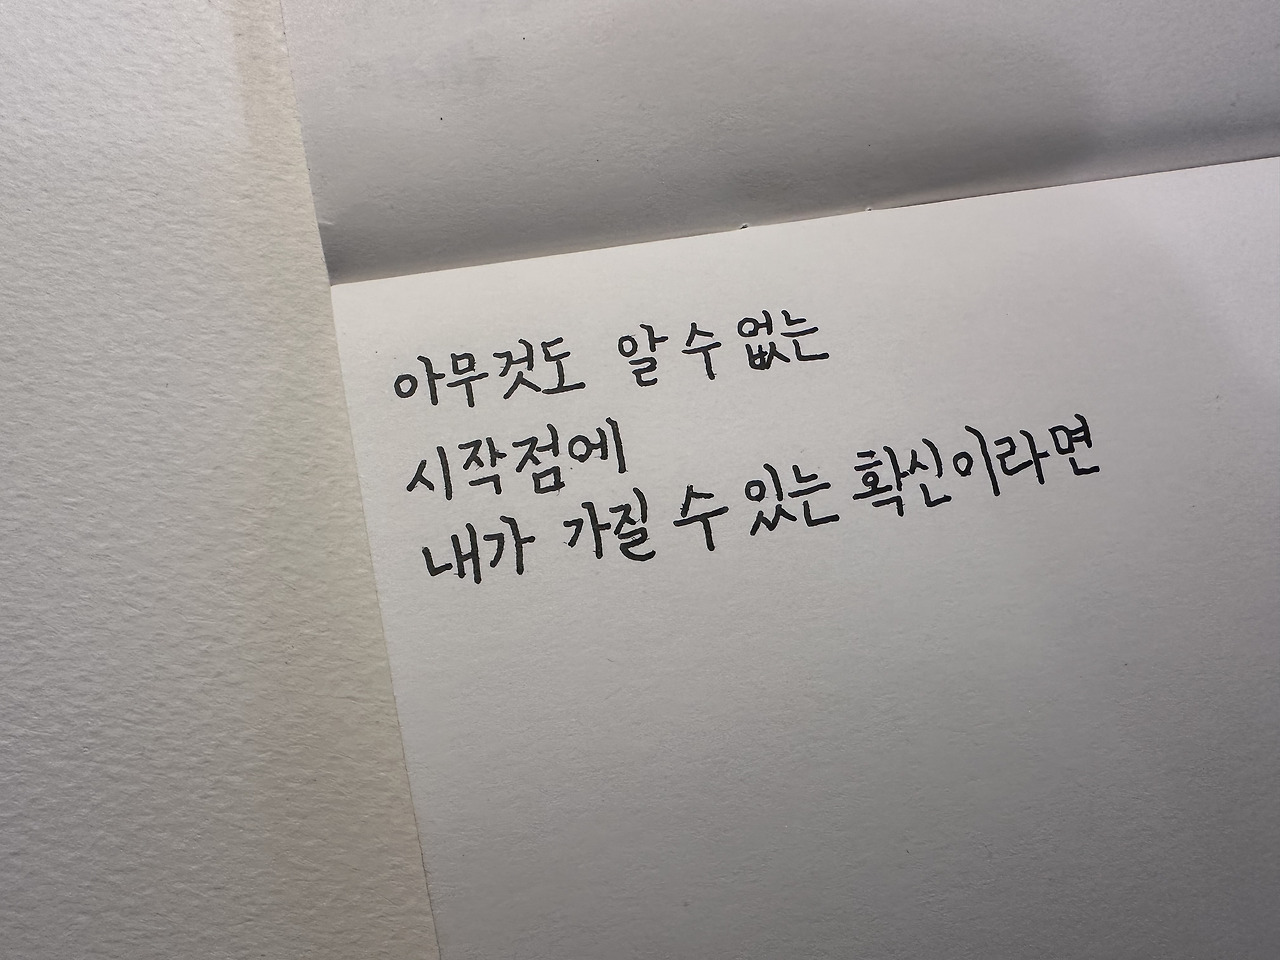 아무것도 알 수 없는
시작점에
내가 가질 수 있는 확신이라면